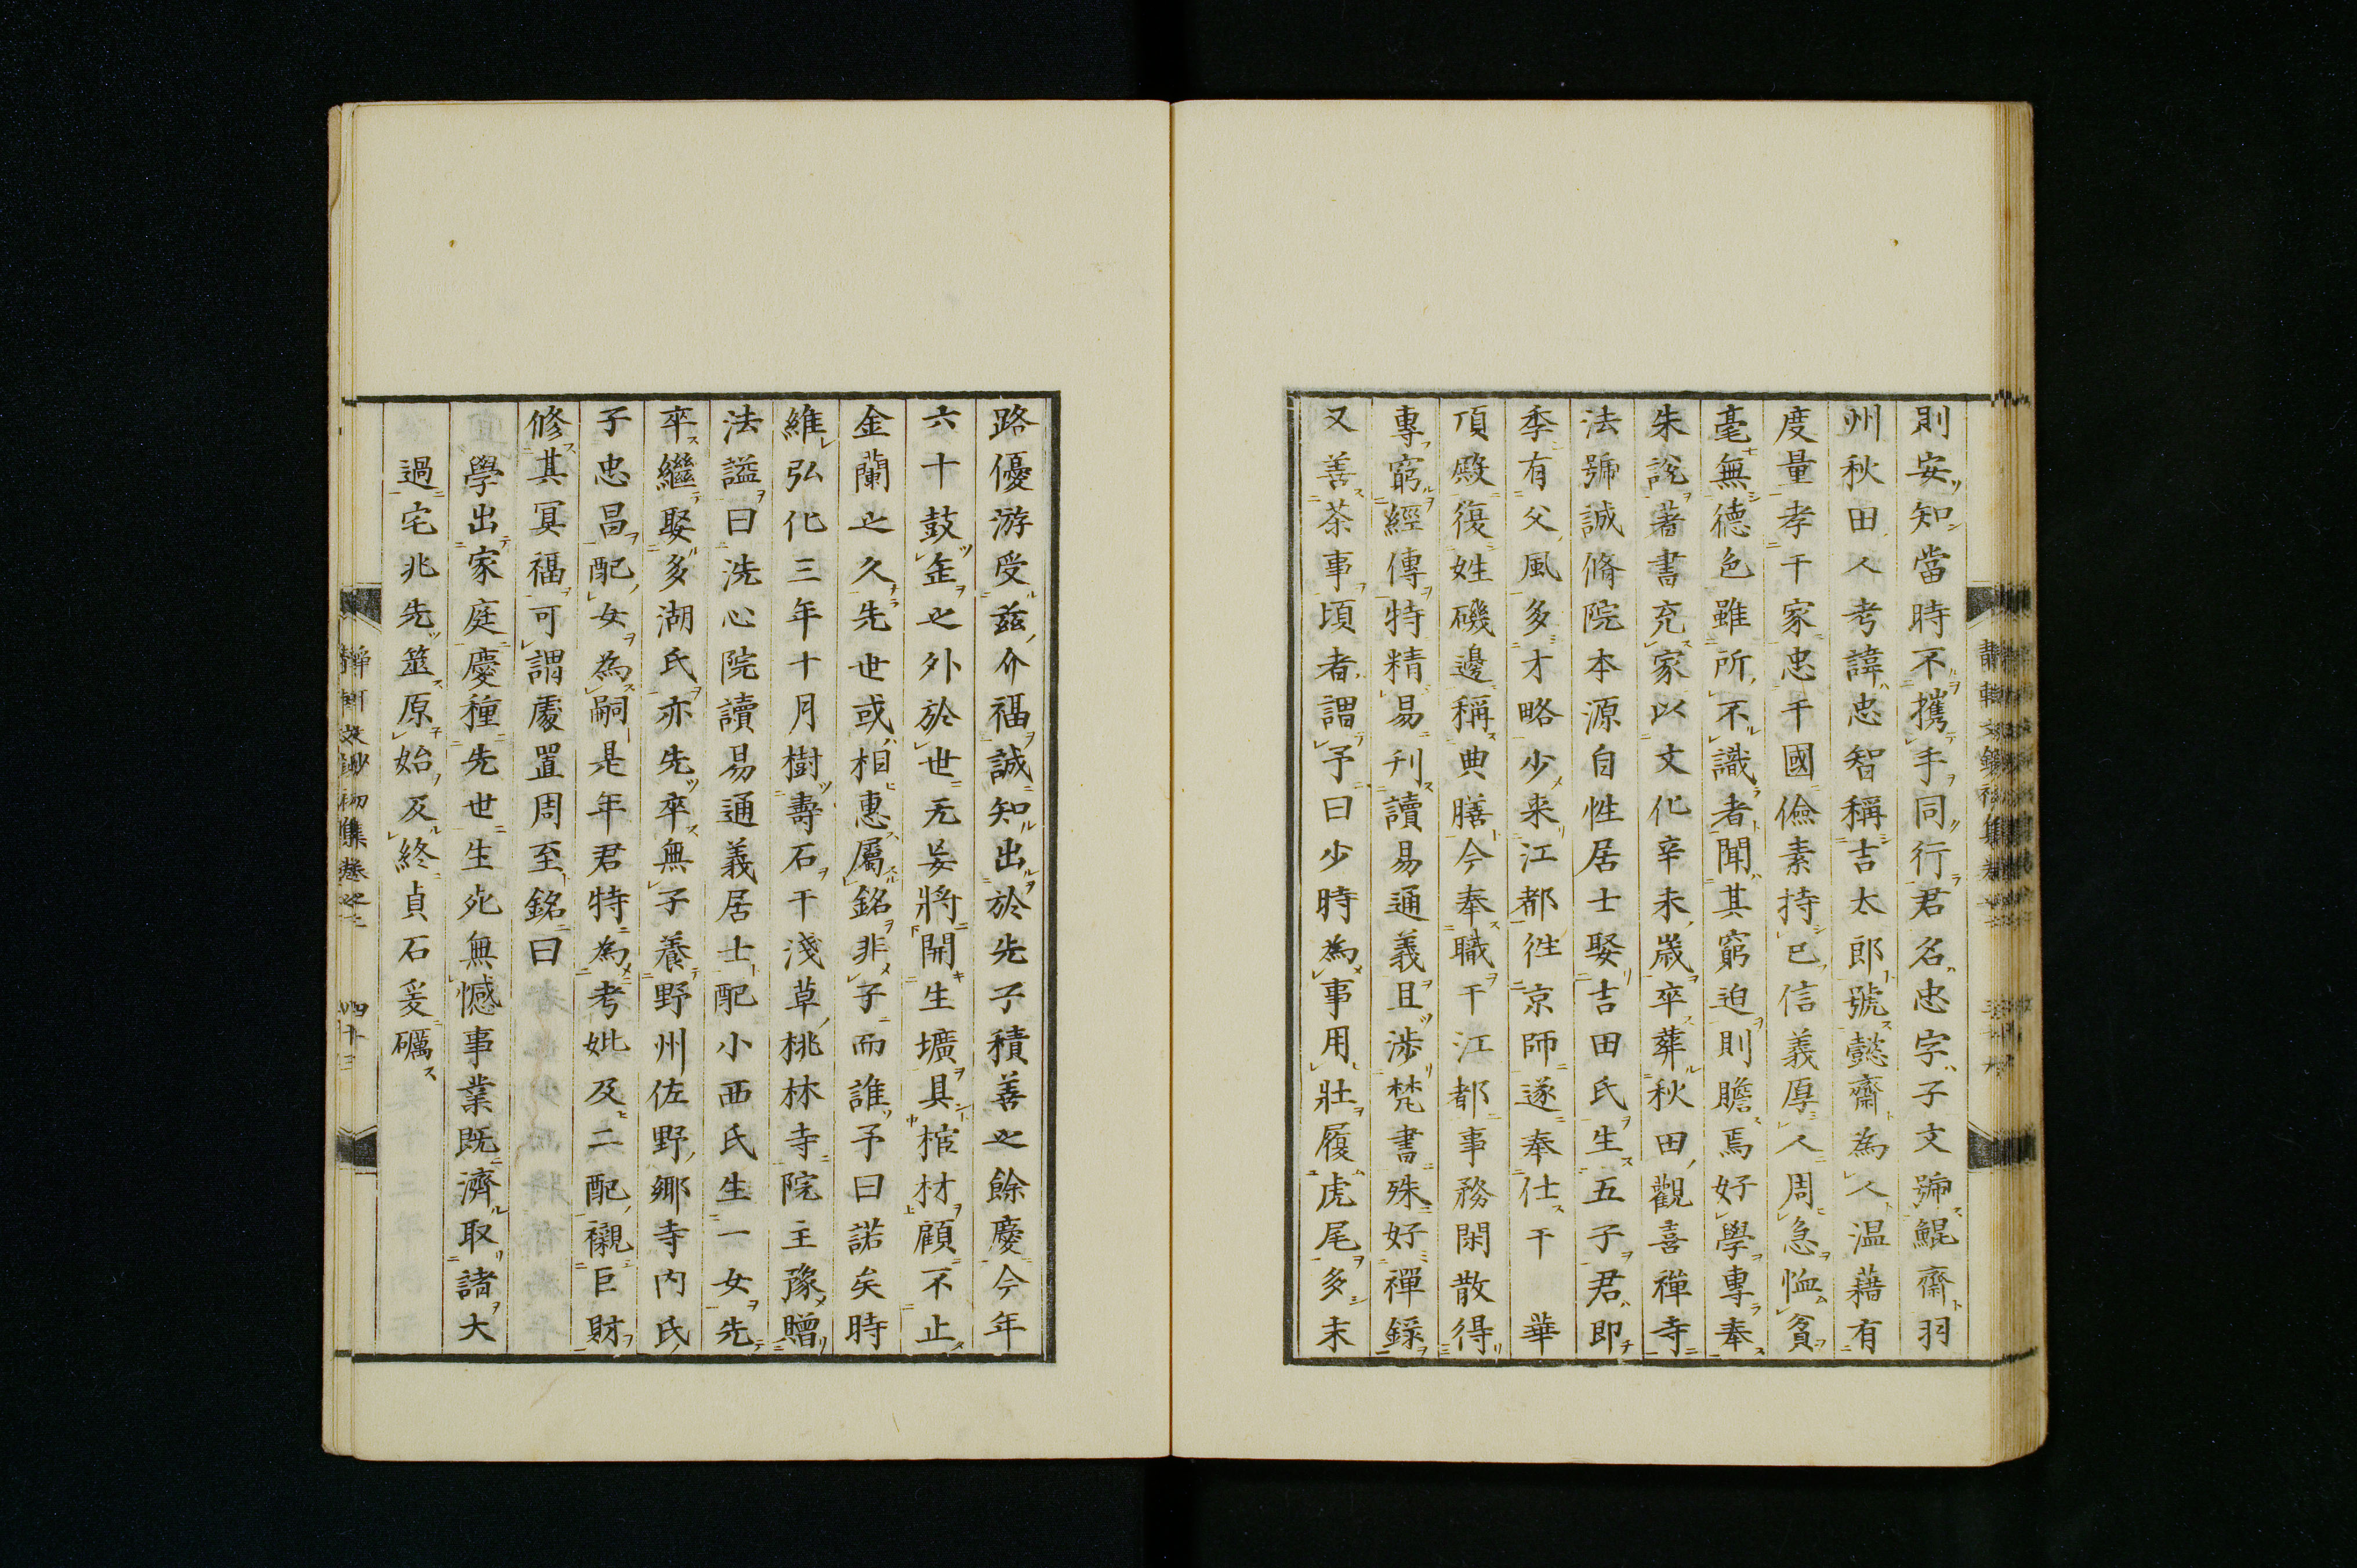 則安知當時不攜手同行君名忠字子文號鯤齋羽
州秋田人考諱忠智稱吉太郎號懿齋為人温藉有
度量孝于家忠于國儉素持己信義厚人周急恤貧
毫無德色雖所不識者聞其窮迫則贍焉好學專奉
朱說著書充家以文化辛未歲卒葬秋田觀喜禪寺
法號誠脩院本源自性居士娶吉田氏生五子君即
季有父風多才略少来江都徃京師遂奉仕于 華
頂殿復姓磯邊稱典膳今奉職于江都事務閑散得
專窮經傳特精易刋讀易通義且渉梵書殊好禪録
又善茶事頃者謂予曰少時為事用壯履虎尾多未
路優游受兹介福誠知出於先子積善之餘慶今年
六十鼓缶之外於世无妄將開生壙具棺材顧不止
金蘭之久先世或相惠屬銘非子而誰予曰諾矣時
維弘化三年十月樹壽石于淺草桃林寺院主豫贈
法謚曰洗心院讀易通義居士配小西氏生一女先
卒繼娶多湖氏亦先卒無子養野州佐野鄉寺内氏
子忠昌配女為嗣是年君特為考妣及二配襯巨財
修其冥福可謂處置周至銘曰
學出家庭慶種先世生死無憾事業既濟取諸大
過宅兆先筮原始及終貞石爰礪